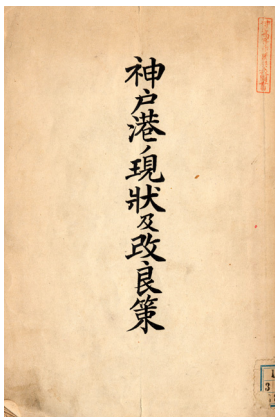 神戸港ノ現狀及改良策